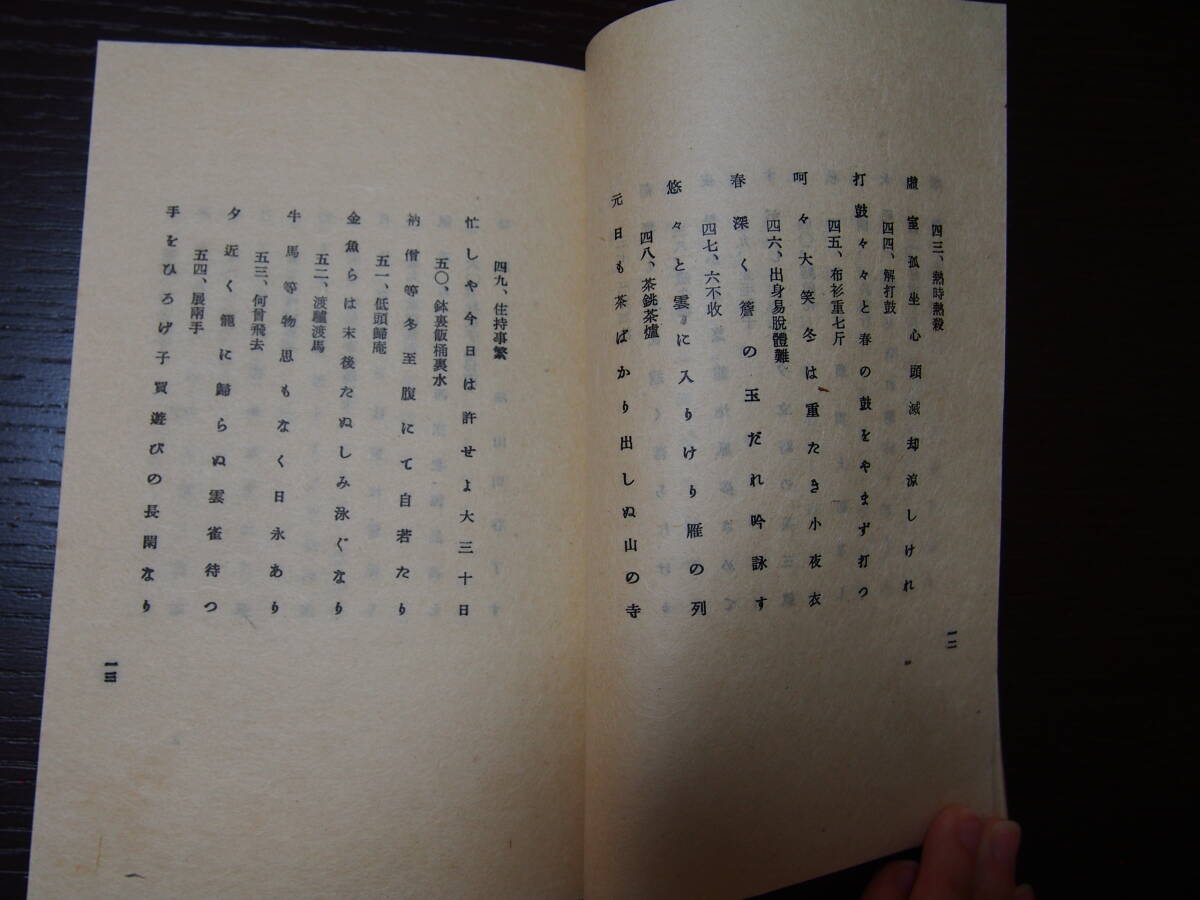 四三、熱時熱殺
虚室孤坐心頭滅却涼しけれ
四四、解打鼓
打鼓々々と春の鼓をやまず打つ
四五、布衫重七斤
呵々大笑冬は重たき小夜衣
四六、出身易脫體難
春深く簷の玉だれ吟詠す
四七、六不收
悠々と雲に入りけり雁の列
四八、茶銚茶爐
元日も茶ばかり出しぬ山の寺
一二
四九、住持事繁
忙しや今日は許せよ大三十日
五〇、鉢裏飯桶裏水
衲僧等冬至腹にて自若たり
五一、低頭歸庵
金魚らは末後たぬしみ泳ぐなり
五二、渡驢渡馬
牛馬等物思もなく日永あり
五三、何曾飛去
夕近く籠に歸らぬ雲雀待つ
五四、展兩手
手をひろげ子買遊びの長閑なり
一三